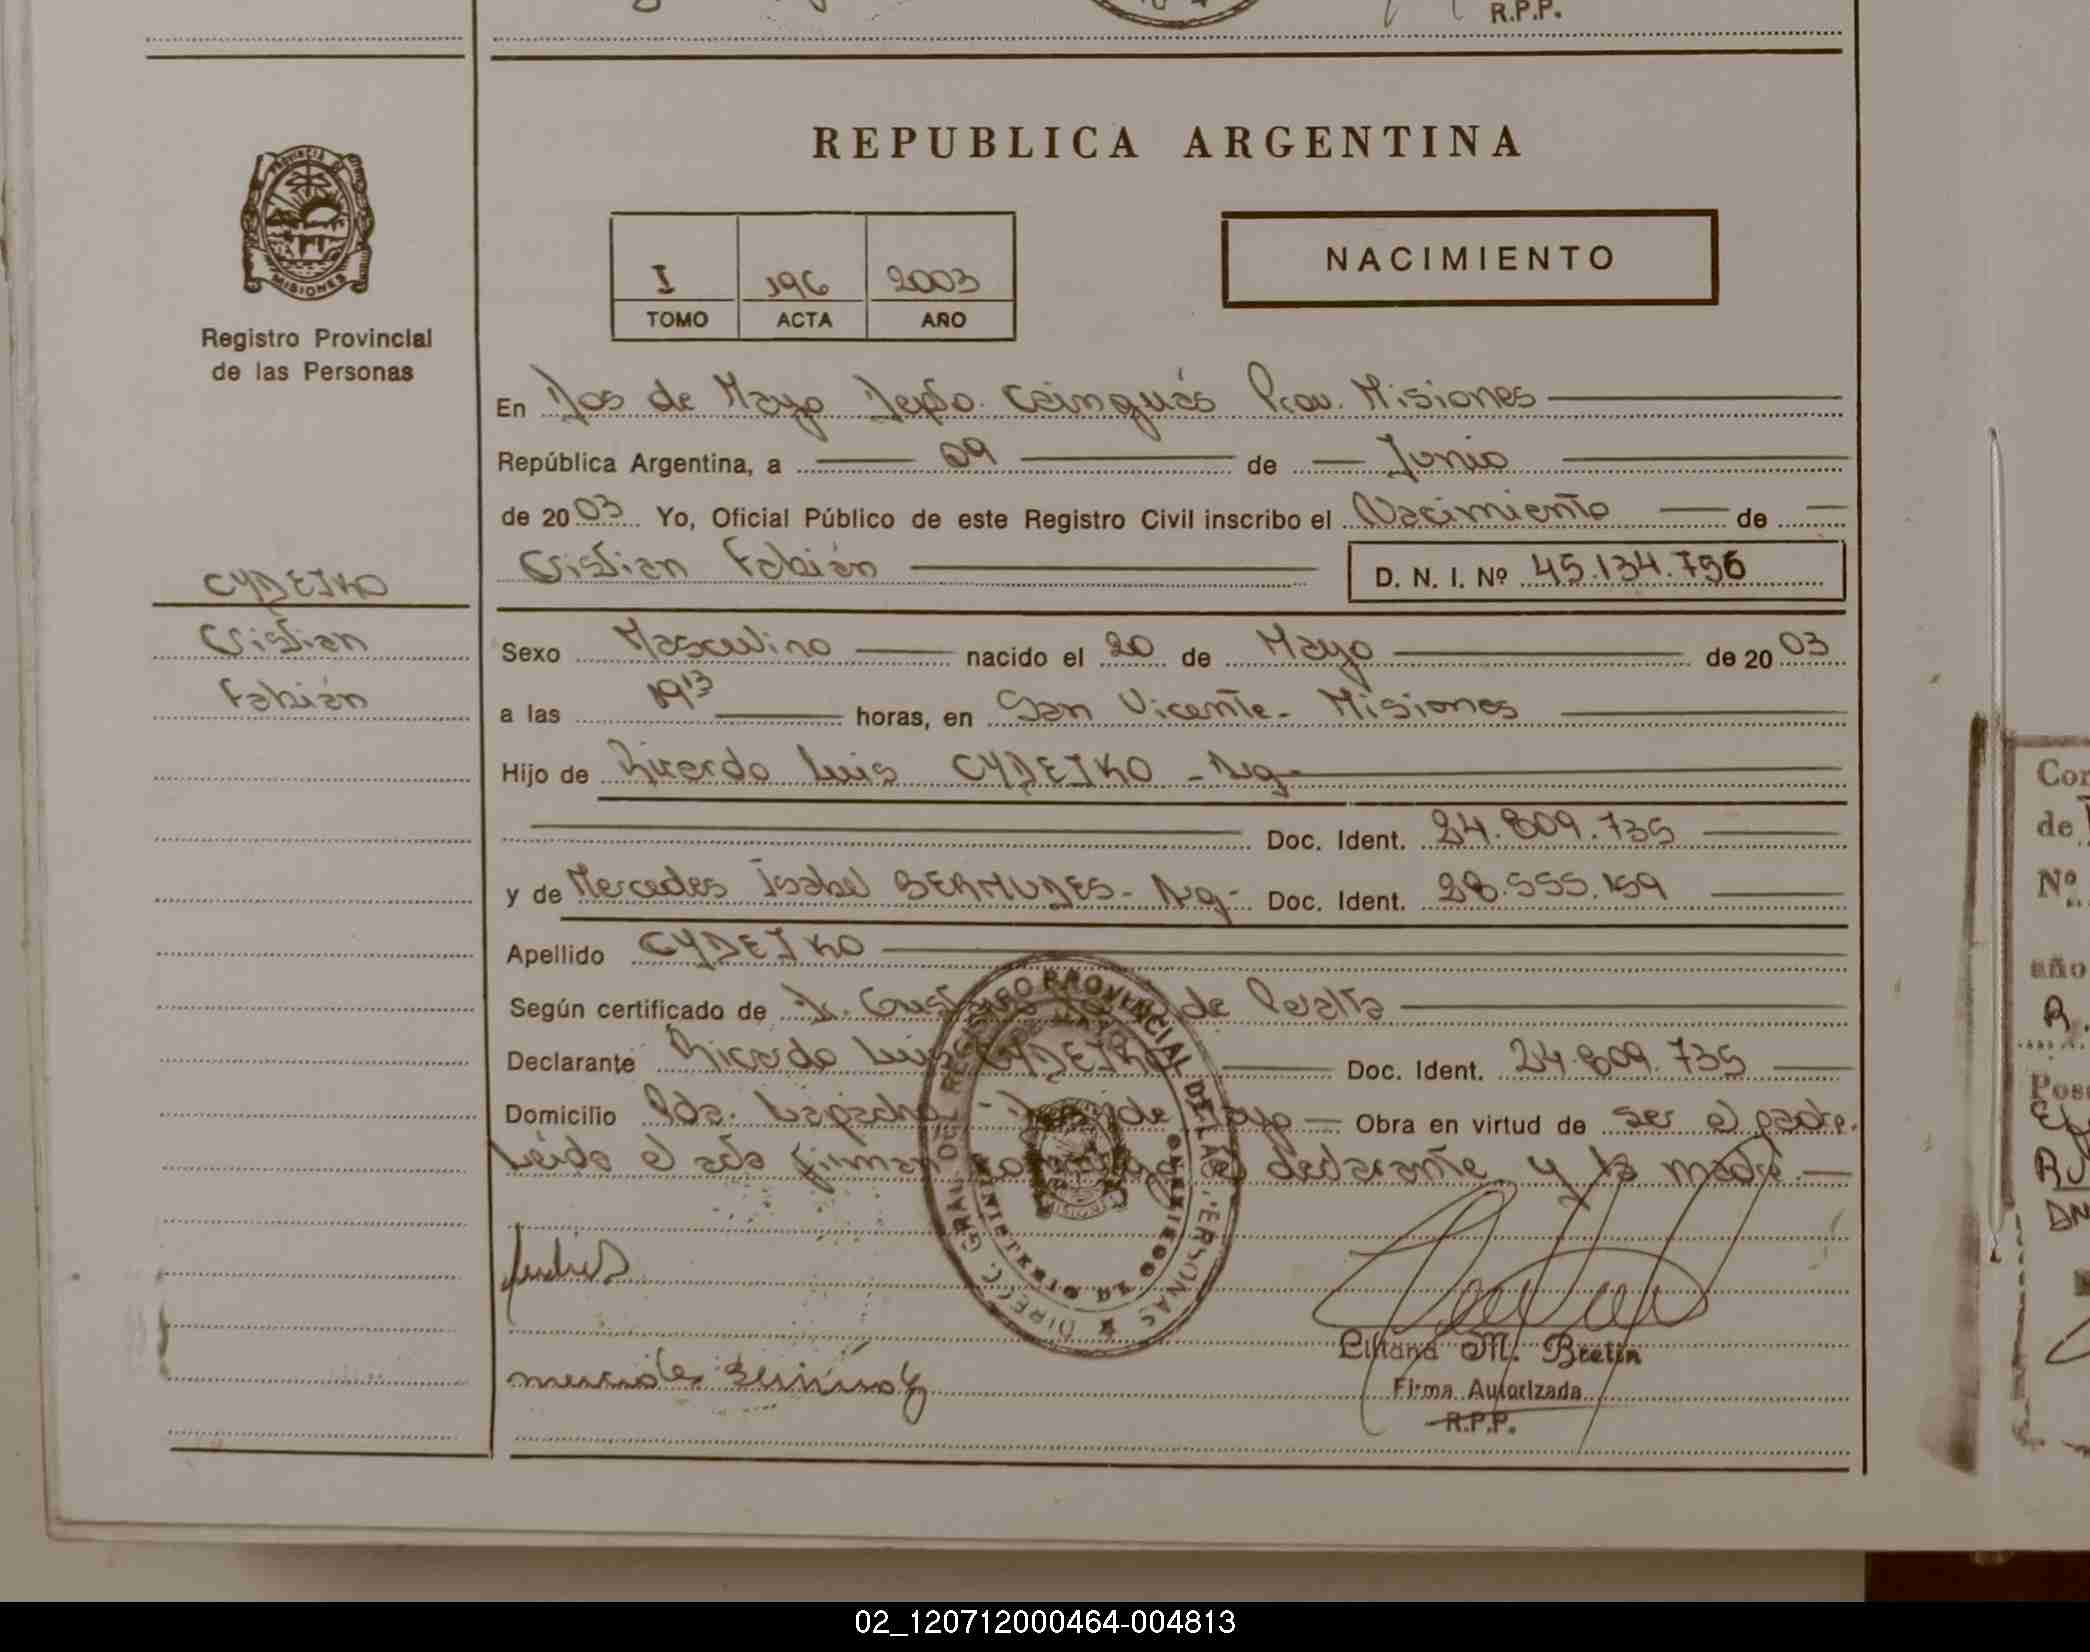 R.P.P.
REPUBLICA ARGENTINA
PROVINCIA DE
MISIONES
Registro Provincial
de las Personas
I 196 2003
TOMO ACTA AÑO
NACIMIENTO
En Dos de Mayo Depto. Cainguás Prov. Misiones
República Argentina, a 09 de Junio
de 2003 Yo, Oficial Público de este Registro Civil inscribo el Nacimiento de
Cristian Fabián D. N. I. Nº 45.134.756
CYDEJKO
Cristian
Fabián
Sexo Masculino nacido el 20 de Mayo de 2003
a las 19 13 horas, en San Vicente - Misiones
Hijo de Ricardo Luis CYDEJKO - Arg -
Doc. Ident. 24.809.735
y de Mercedes Isabel BERMUDES - Arg - Doc. Ident. 28.555.159
Apellido CYDEJKO
Según certificado de de Peralta
Declarante Ricardo Luis CYDEJKO Doc. Ident. 24.809.735
Domicilio Pda. Lapacho - Dos de Mayo Obra en virtud de ser el padre.
Leída el acta firman conmigo el declarante y la madre.
REGISTRO PROVINCIAL DE LAS PERSONAS
DIREC. GRAL.
Liliana M. Bretin
Firma Autorizada
R.P.P.
Cor
de
Nº
año
R.
Pos
02_120712000464-004813